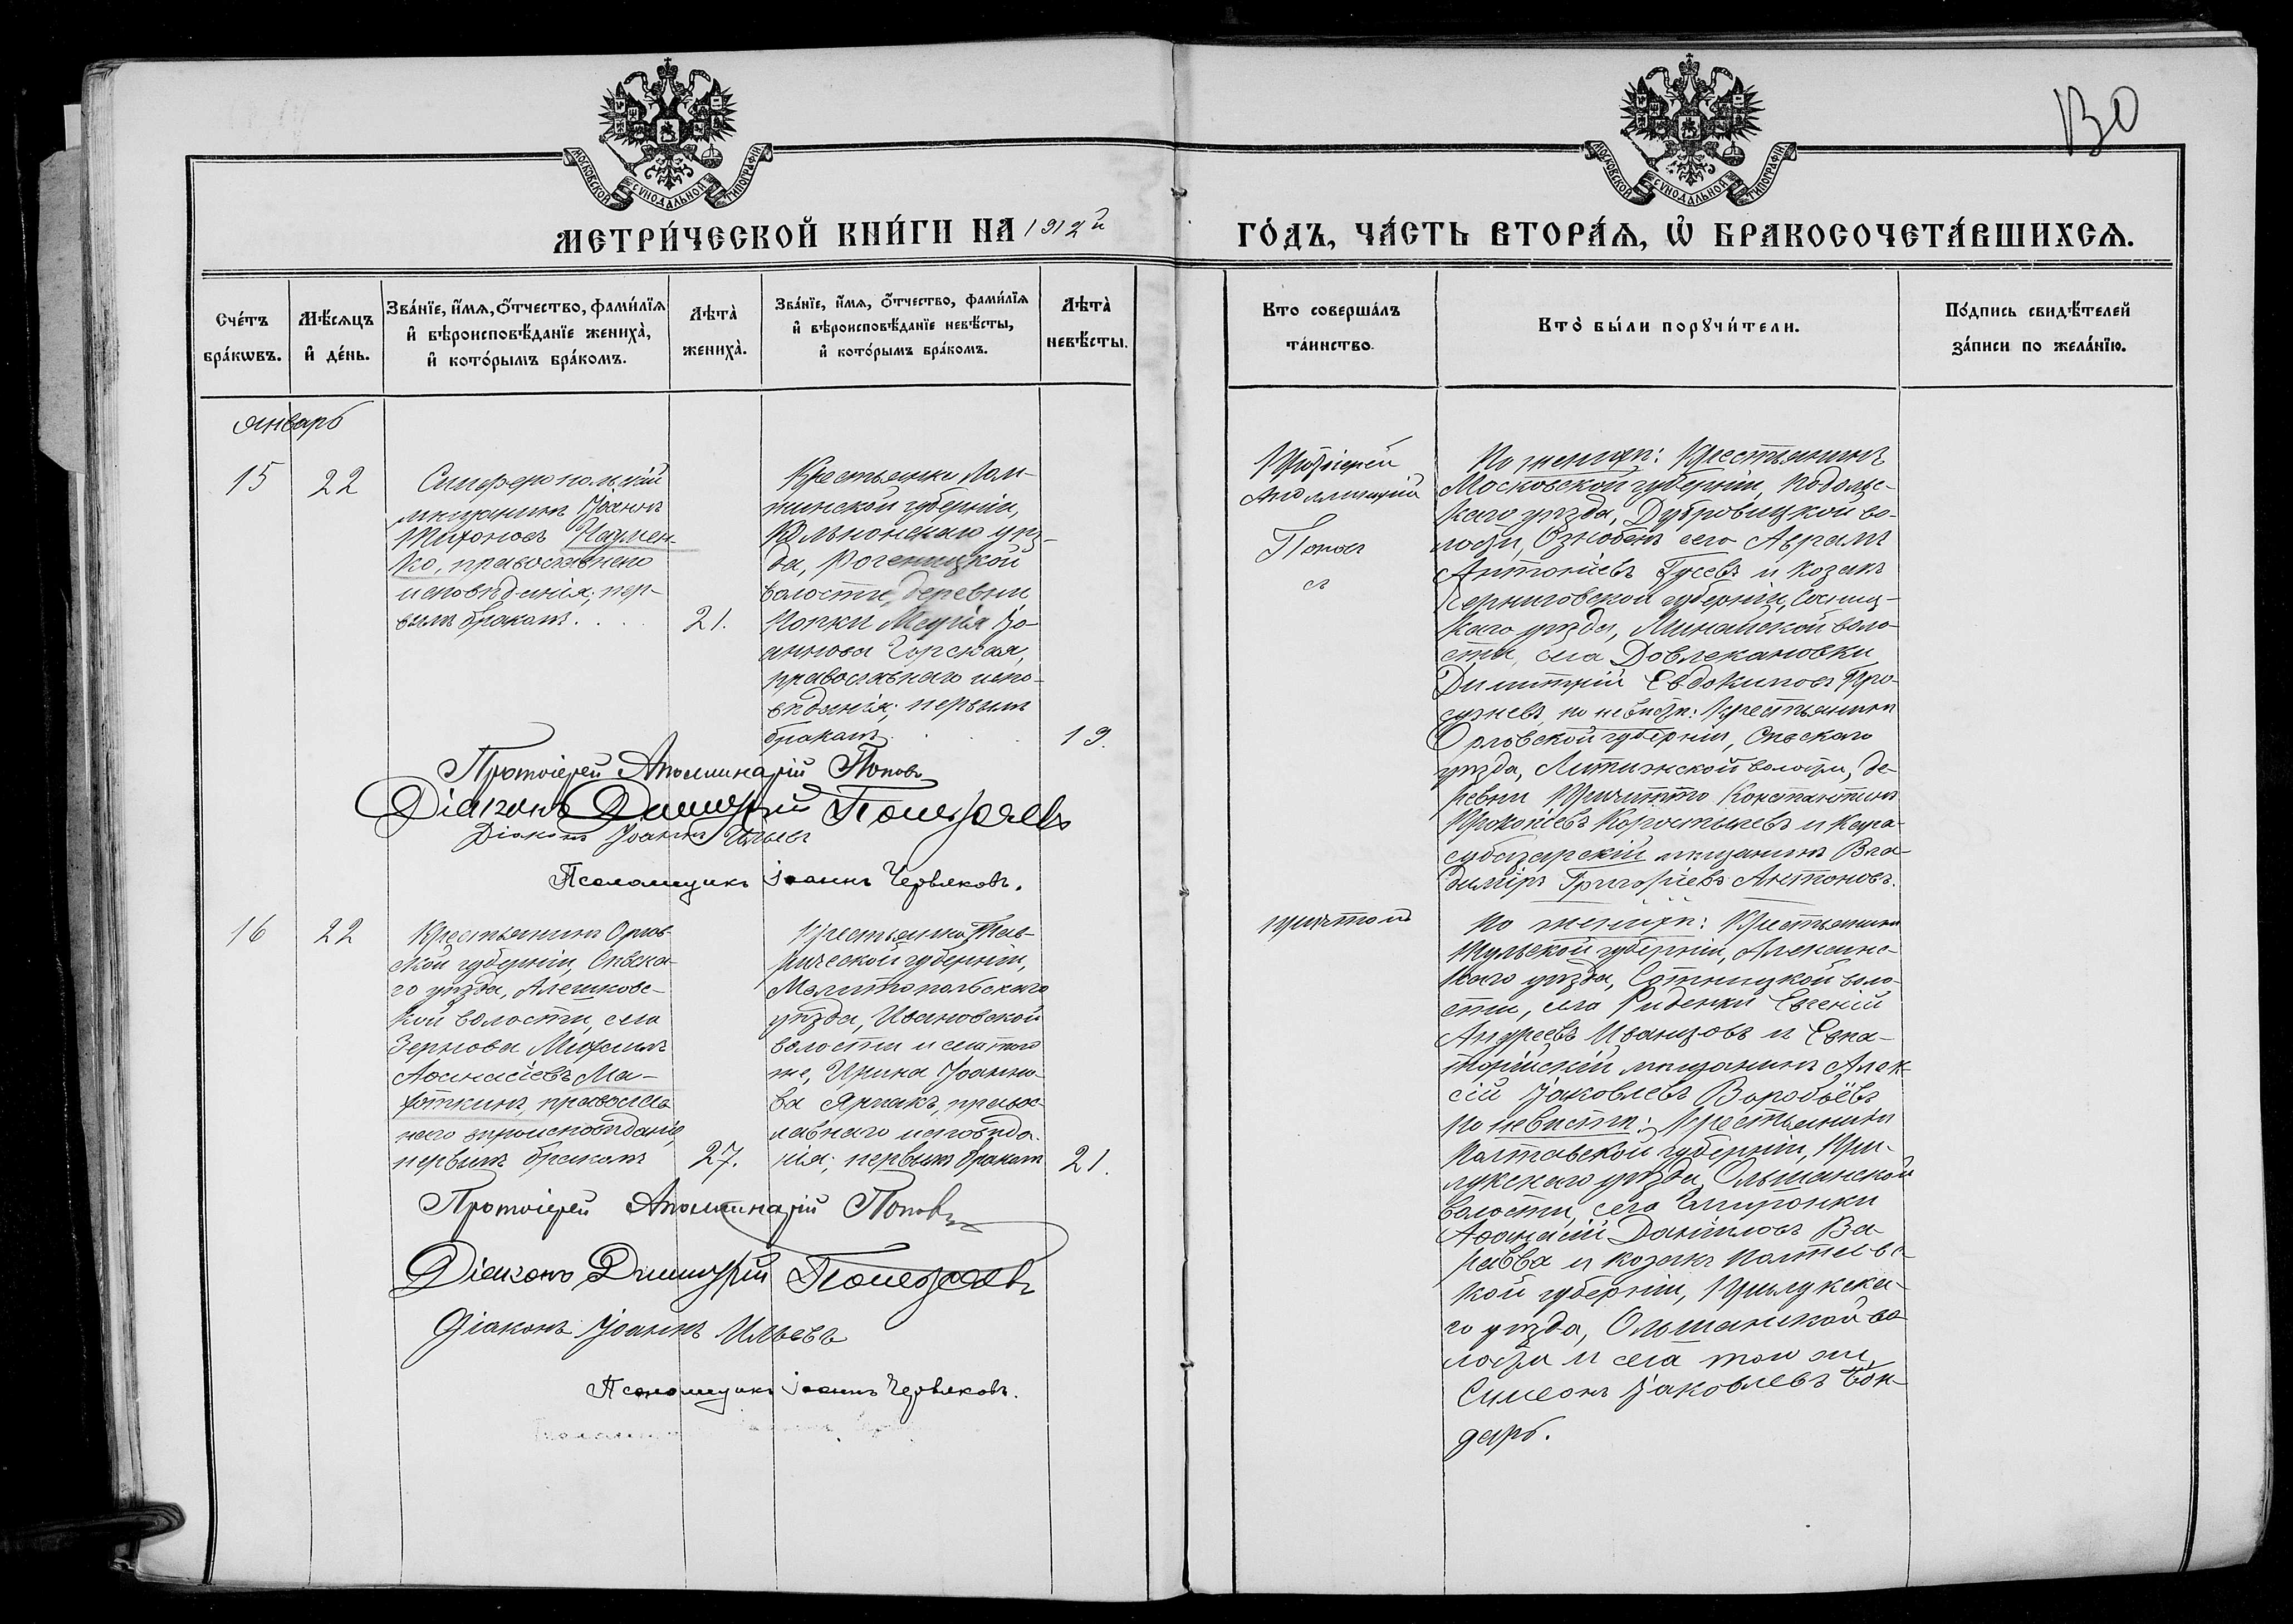 130
МОСКОВСКОЙ СУНОДАЛЬНОЙ ТИПОГРАФІИ
МОСКОВСКОЙ СУНОДАЛЬНОЙ ТИПОГРАФІИ
МЕТРИ́ЧЕСКОЙ КНИ́ГИ НА 1912й
ГО́ДЪ, ЧА́СТЬ ВТОРА́Я, Ѡ БРАКОСОЧЕТА́ВШИХСЯ.
Сче́тъ
бра́кѡвъ.
Мѣ́сяцъ
и де́нь.
Зва́нїе, и́мя, о́тчество, фами́лїя
и вѣроисповѣ́данїе жениха̀,
и кото́рымъ бра́комъ.
Лѣта̀
жениха̀.
Зва́нїе, и́мя, о́тчество, фами́лїя
и вѣроисповѣ́данїе невѣ́сты,
и кото́рымъ бра́комъ.
Лѣта̀
невѣ́сты.
Кто совершáлъ
тáинство.
Кто̀ бы́ли порꙋчи́тели.
По́дпись свидѣ́телей
за́писи по жела́нїю.
Январь
15
22
Симферопольскій
мѣщанинъ Іоаннъ
Тихоновъ Наумен-
ко, православнаго
исповѣданія; пер-
вымъ бракомъ.
21.
Крестьянка Лом-
жинской губерніи,
Кольненскаго уѣз-
да, Рогеницкой
волости, деревни
Іо-
аннова Горская,
православнаго испо-
вѣданія; первымъ
бракомъ.
19.
Протоіерей
Аполлинарій
Поповъ
съ
По женихѣ: Крестьянинъ
Московской губерніи, Подольс-
каго уѣзда, Дубровицкой во-
лости, села Аврамъ
Антоніевъ Гусевъ и Козакъ
Черниговской губерніи, Сосниц-
каго уѣзда, воло-
сти, села Довлекановки
Димитрій Евдокимовъ
по невѣстѣ: Крестьянинъ
Орловской губерніи, Сѣвскаго
уѣзда, Литижской волости, де-
ревни Константинъ
Прокопіевъ Коростылевъ и Кара-
субазарскій мѣщанинъ Вла-
диміръ Григоріевъ Антоновъ.
Протоіерей Аполлинарій Поповъ
Діаконъ Димитрій
Діаконъ Іоаннъ Ильевъ
Псаломщикъ Іоаннъ Червяковъ.
16
22
Крестьянинъ Орлов-
ской губерніи, Сѣвска-
го уѣзда, Алешковс-
кой волости, села
Зернова Михаилъ
Аѳанасіевъ Ма-
православ
наго вѣроисповѣданія,
первымъ бракомъ
27.
Крестьянка Тав-
рической губерніи,
Мелитопольскаго
уѣзда, Ивановской
волости и села того
же, Ирина Іоанно-
ва Ярмакъ, правос-
лавнаго исповѣда-
нія; первымъ бракомъ
21.
причтомъ
По женихѣ: Крестьянинъ
Тульской губерніи, Алексинс-
каго уѣзда, Сотницкой воло-
сти, села Евгеній
Андреевъ Иванцовъ и Евпа-
торійскій мѣщанинъ Алек-
сій Іаковлевъ Воробьёвъ
по невѣстѣ: Крестьянинъ
Полтавской губерніи, При-
лукскаго уѣзда, Ольшанской
волости, села
Аѳанасій Даніиловъ Ва-
равва и козакъ Полтавс-
кой губерніи, Прилукска-
го уѣзда, Ольшанской во-
лости и села той же
Симеонъ Іаковлевъ Бон-
дарь.
Протоіерей Аполлинарій Поповъ
Діаконъ Димитрій
Діаконъ Іоаннъ Ильевъ
Псаломщикъ Іоаннъ Червяковъ.